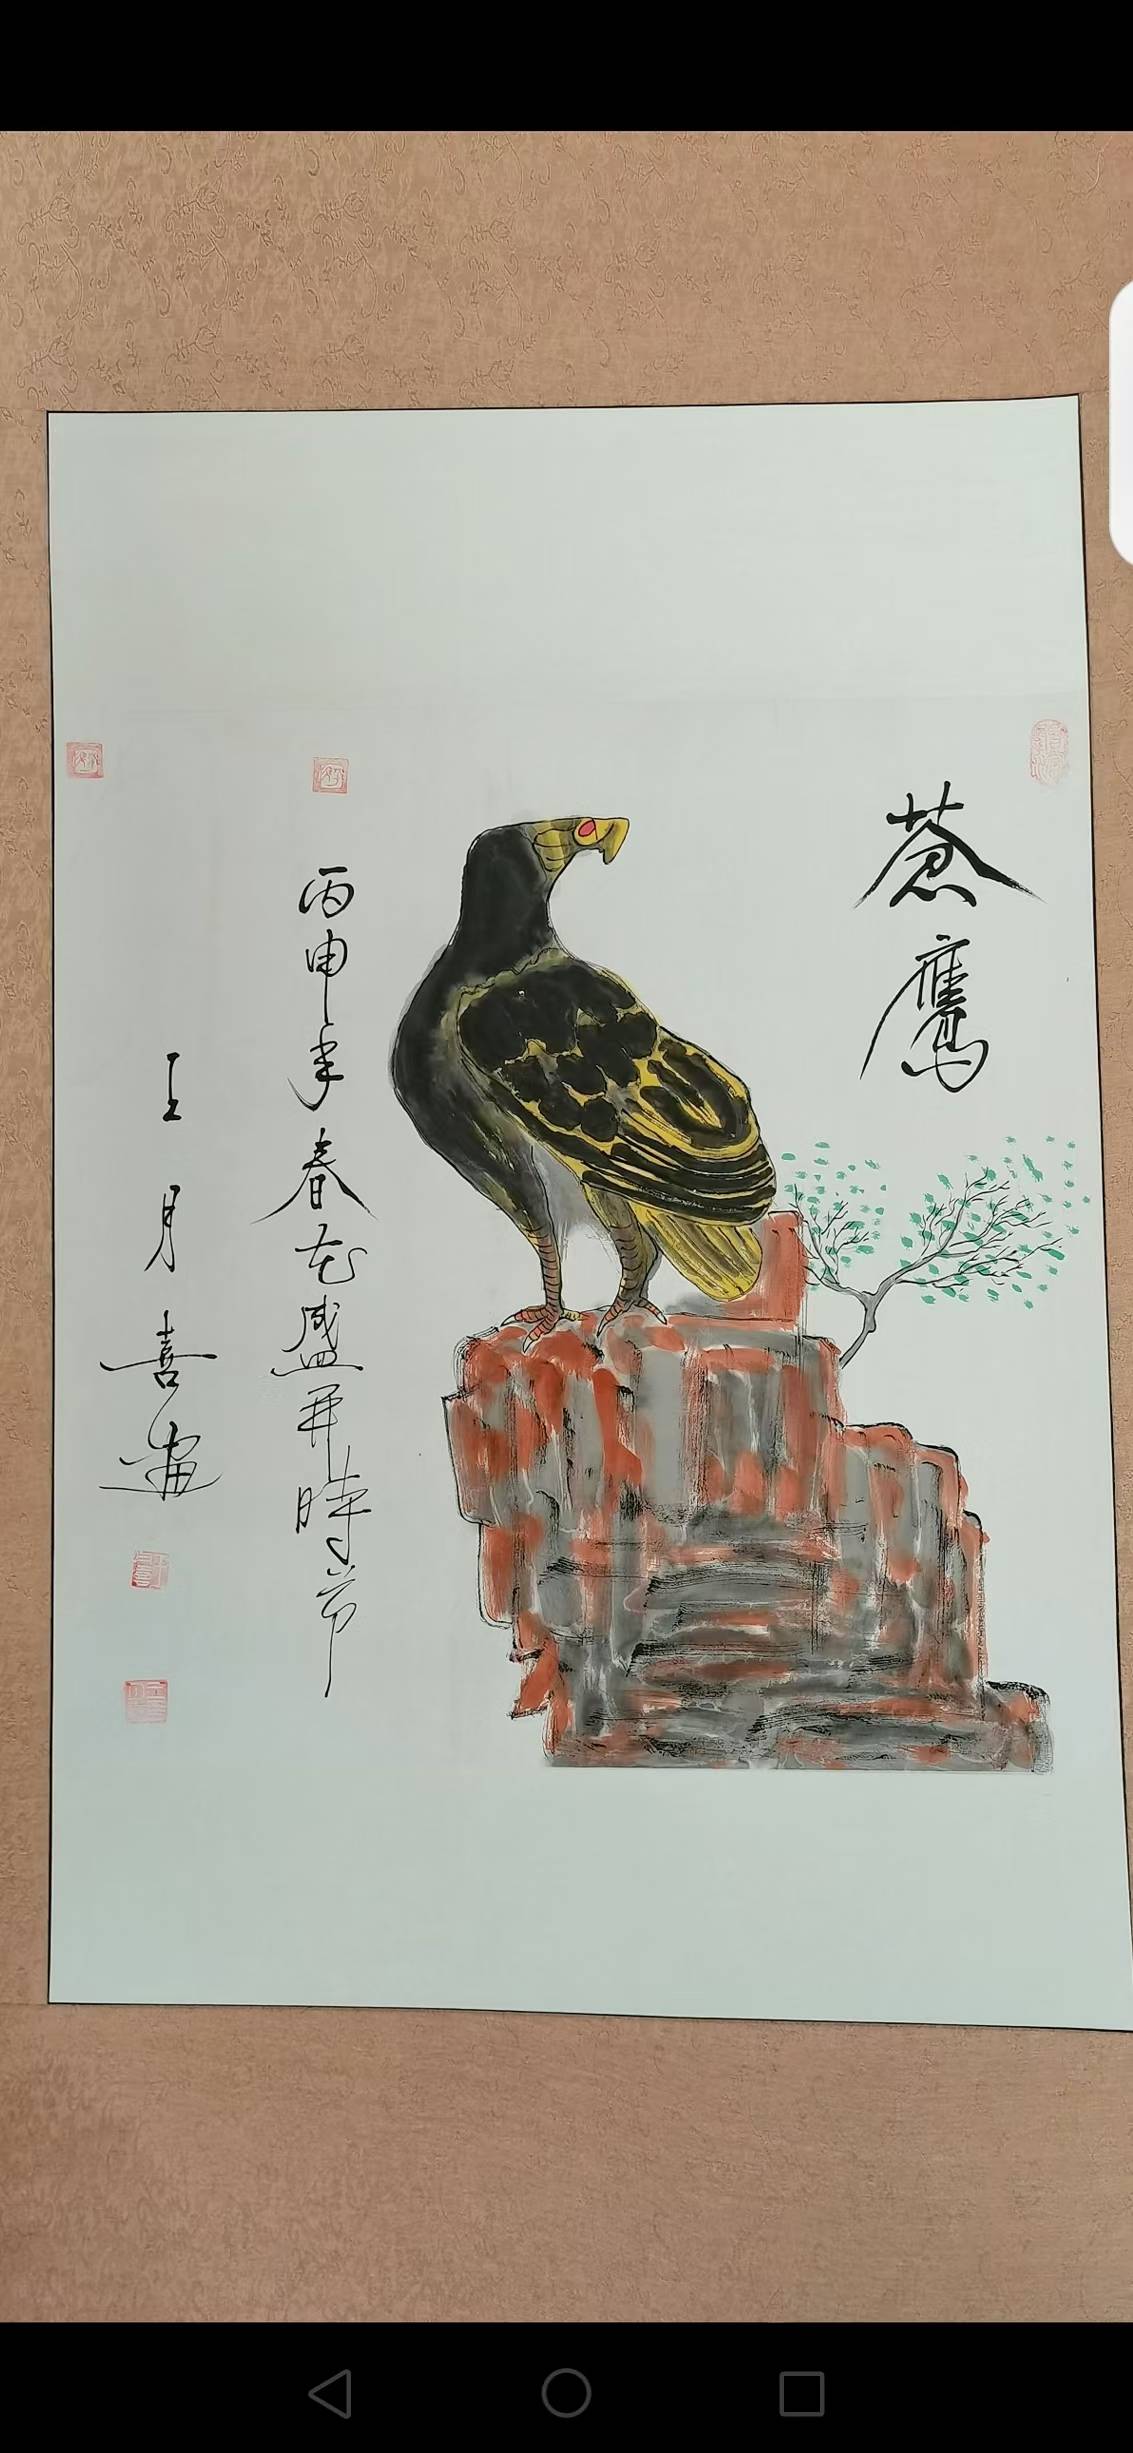 蒼鷹
丙申年春花盛開時节
王月喜畫